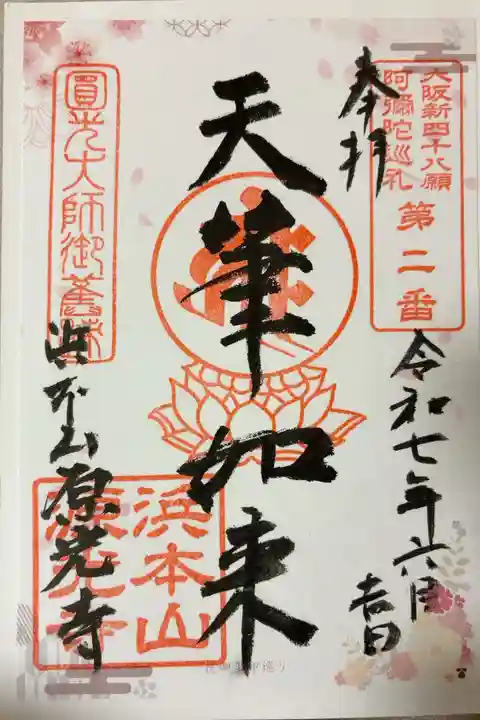 大阪新四十八願
阿彌陀巡礼
第二番
奉拝
令和七年六月
吉日
天筆如来
圓光大師御舊跡
浜本山原光寺
浜本山
源光寺